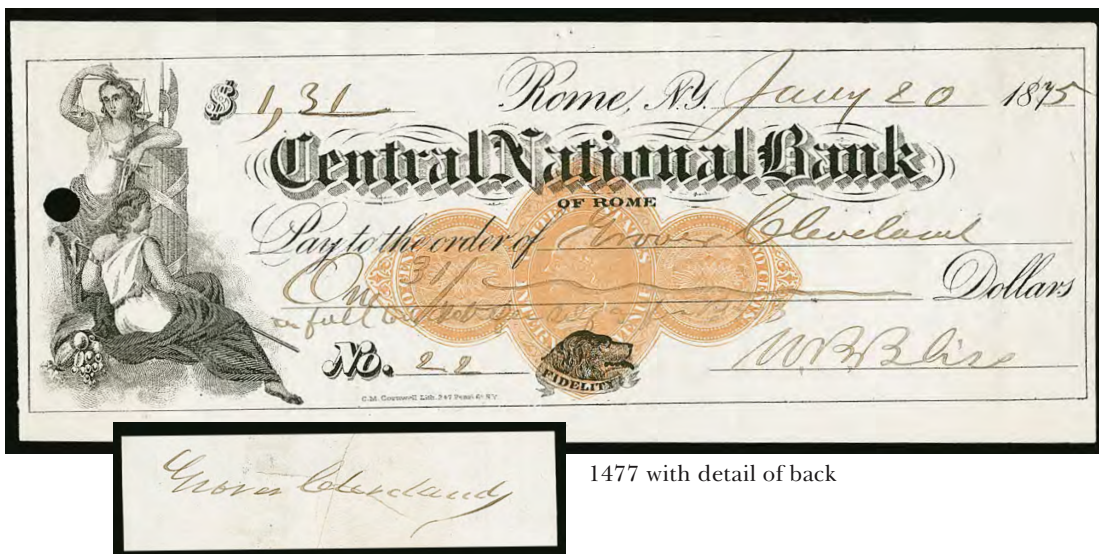 $ 1,31 Rome, N.Y. Jany 20 1875
Central National Bank
OF ROME
Pay to the order of Grover Cleveland
One 31/ Dollars
in full
No. 22 W B Bliss
FIDELITY
Grover Cleveland
1477 with detail of back